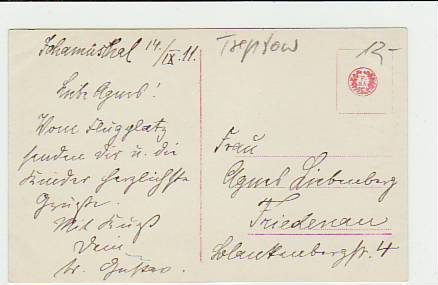 Johannisthal 14./IX.11.
Liebe Agnes!
Vom Flugplatz
senden Dir u. die
Kinder herzlichste
Grüße.
Mit Kuß
Dein
Gustav.
Treptow
12-
Frau
Agnes Liebenberg
Friedenau
Blankenbergstr. 4